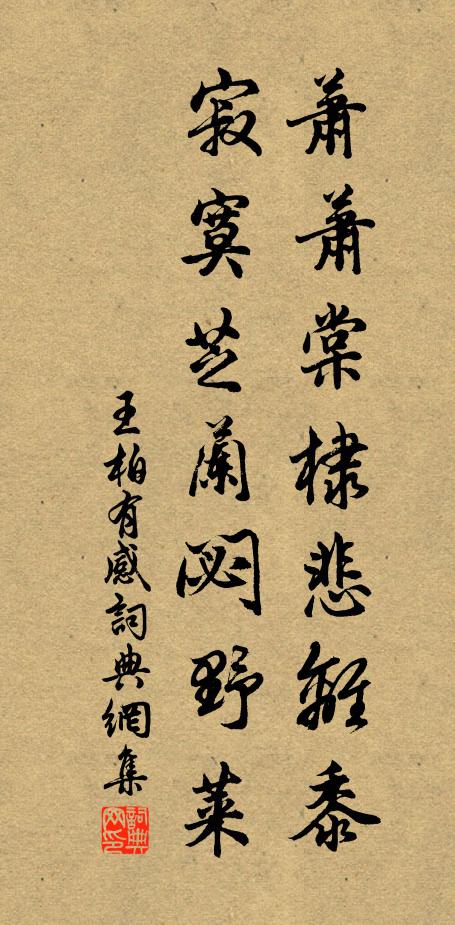 蕭蕭棠棣悲離黍
寂寞芝蘭閟野萊
王柏有感詞典網集
詞典网印